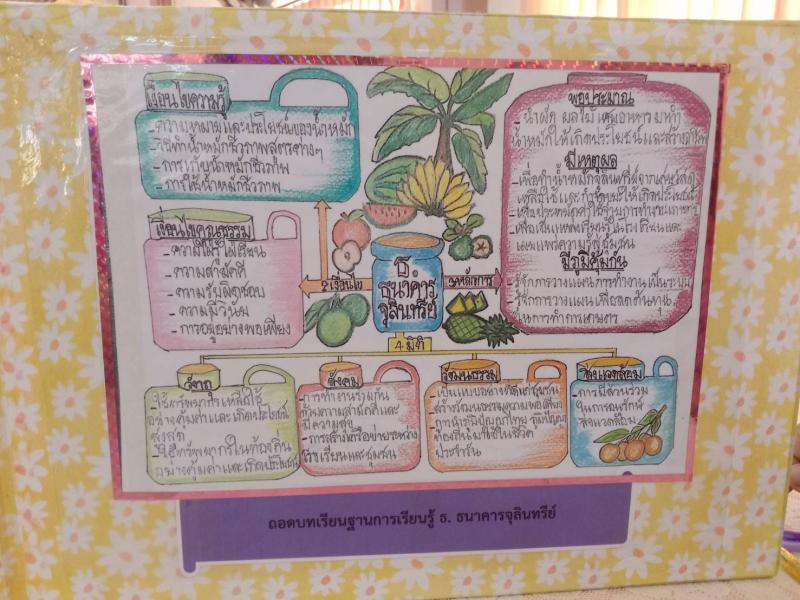 เงื่อนไขความรู้
- ความหมายและประโยชน์ของน้ำหมัก
- วิธีทำน้ำหมักชีวภาพสูตรต่างๆ
- การเก็บรักษาน้ำหมักชีวภาพ
- การใช้น้ำหมักชีวภาพ
พอประมาณ
- นำผัก ผลไม้ เศษอาหาร มาทำ
น้ำหมักให้เกิดประโยชน์และสร้าง
มีเหตุผล
- เพื่อทำน้ำหมักจุลินทรีย์จากเศษวัสดุ
เหลือใช้และทำให้เกิดประโยชน์
- เพื่อประหยัดค่าใช้จ่าย
- เพื่อเป็นแหล่งเรียนรู้ในโรงเรียนและ
เผยแพร่ความรู้สู่ชุมชน
มีภูมิคุ้มกัน
- รู้จักการวางแผนการทำงานเป็นระบบ
- รู้จักการวางแผนเพื่อลดต้นทุน
ในการทำการเกษตร
เงื่อนไขคุณธรรม
- ความใฝ่รู้ใฝ่เรียน
- ความสามัคคี
- ความรับผิดชอบ
- ความมีวินัย
- การอยู่อย่างพอเพียง
2 เงื่อนไข
ธ.
ธนาคาร
จุลินทรีย์
3 หลักการ
4 มิติ
วัตถุ
- ใช้ทรัพยากรเหลือใช้
อย่างคุ้มค่าและเกิดประโยชน์
สูงสุด
- ใช้ทรัพยากรในท้องถิ่น
อย่างคุ้มค่าและเกิดประโยชน์
สังคม
- การทำงานร่วมกัน
ด้วยความสามัคคีและ
มีความสุข
- การสร้างเครือข่ายระหว่าง
โรงเรียนและชุมชน
วัฒนธรรม
- เป็นแบบอย่างที่ดีแก่ชุมชน
สร้างวัฒนธรรมความพอเพียง
- การนำภูมิปัญญาไทย ภูมิปัญญา
ท้องถิ่นมาใช้ในชีวิต
ประจำวัน
สิ่งแวดล้อม
- การมีส่วนร่วม
ในการอนุรักษ์
สิ่งแวดล้อม
ถอดบทเรียนฐานการเรียนรู้ ธ. ธนาคารจุลินทรีย์